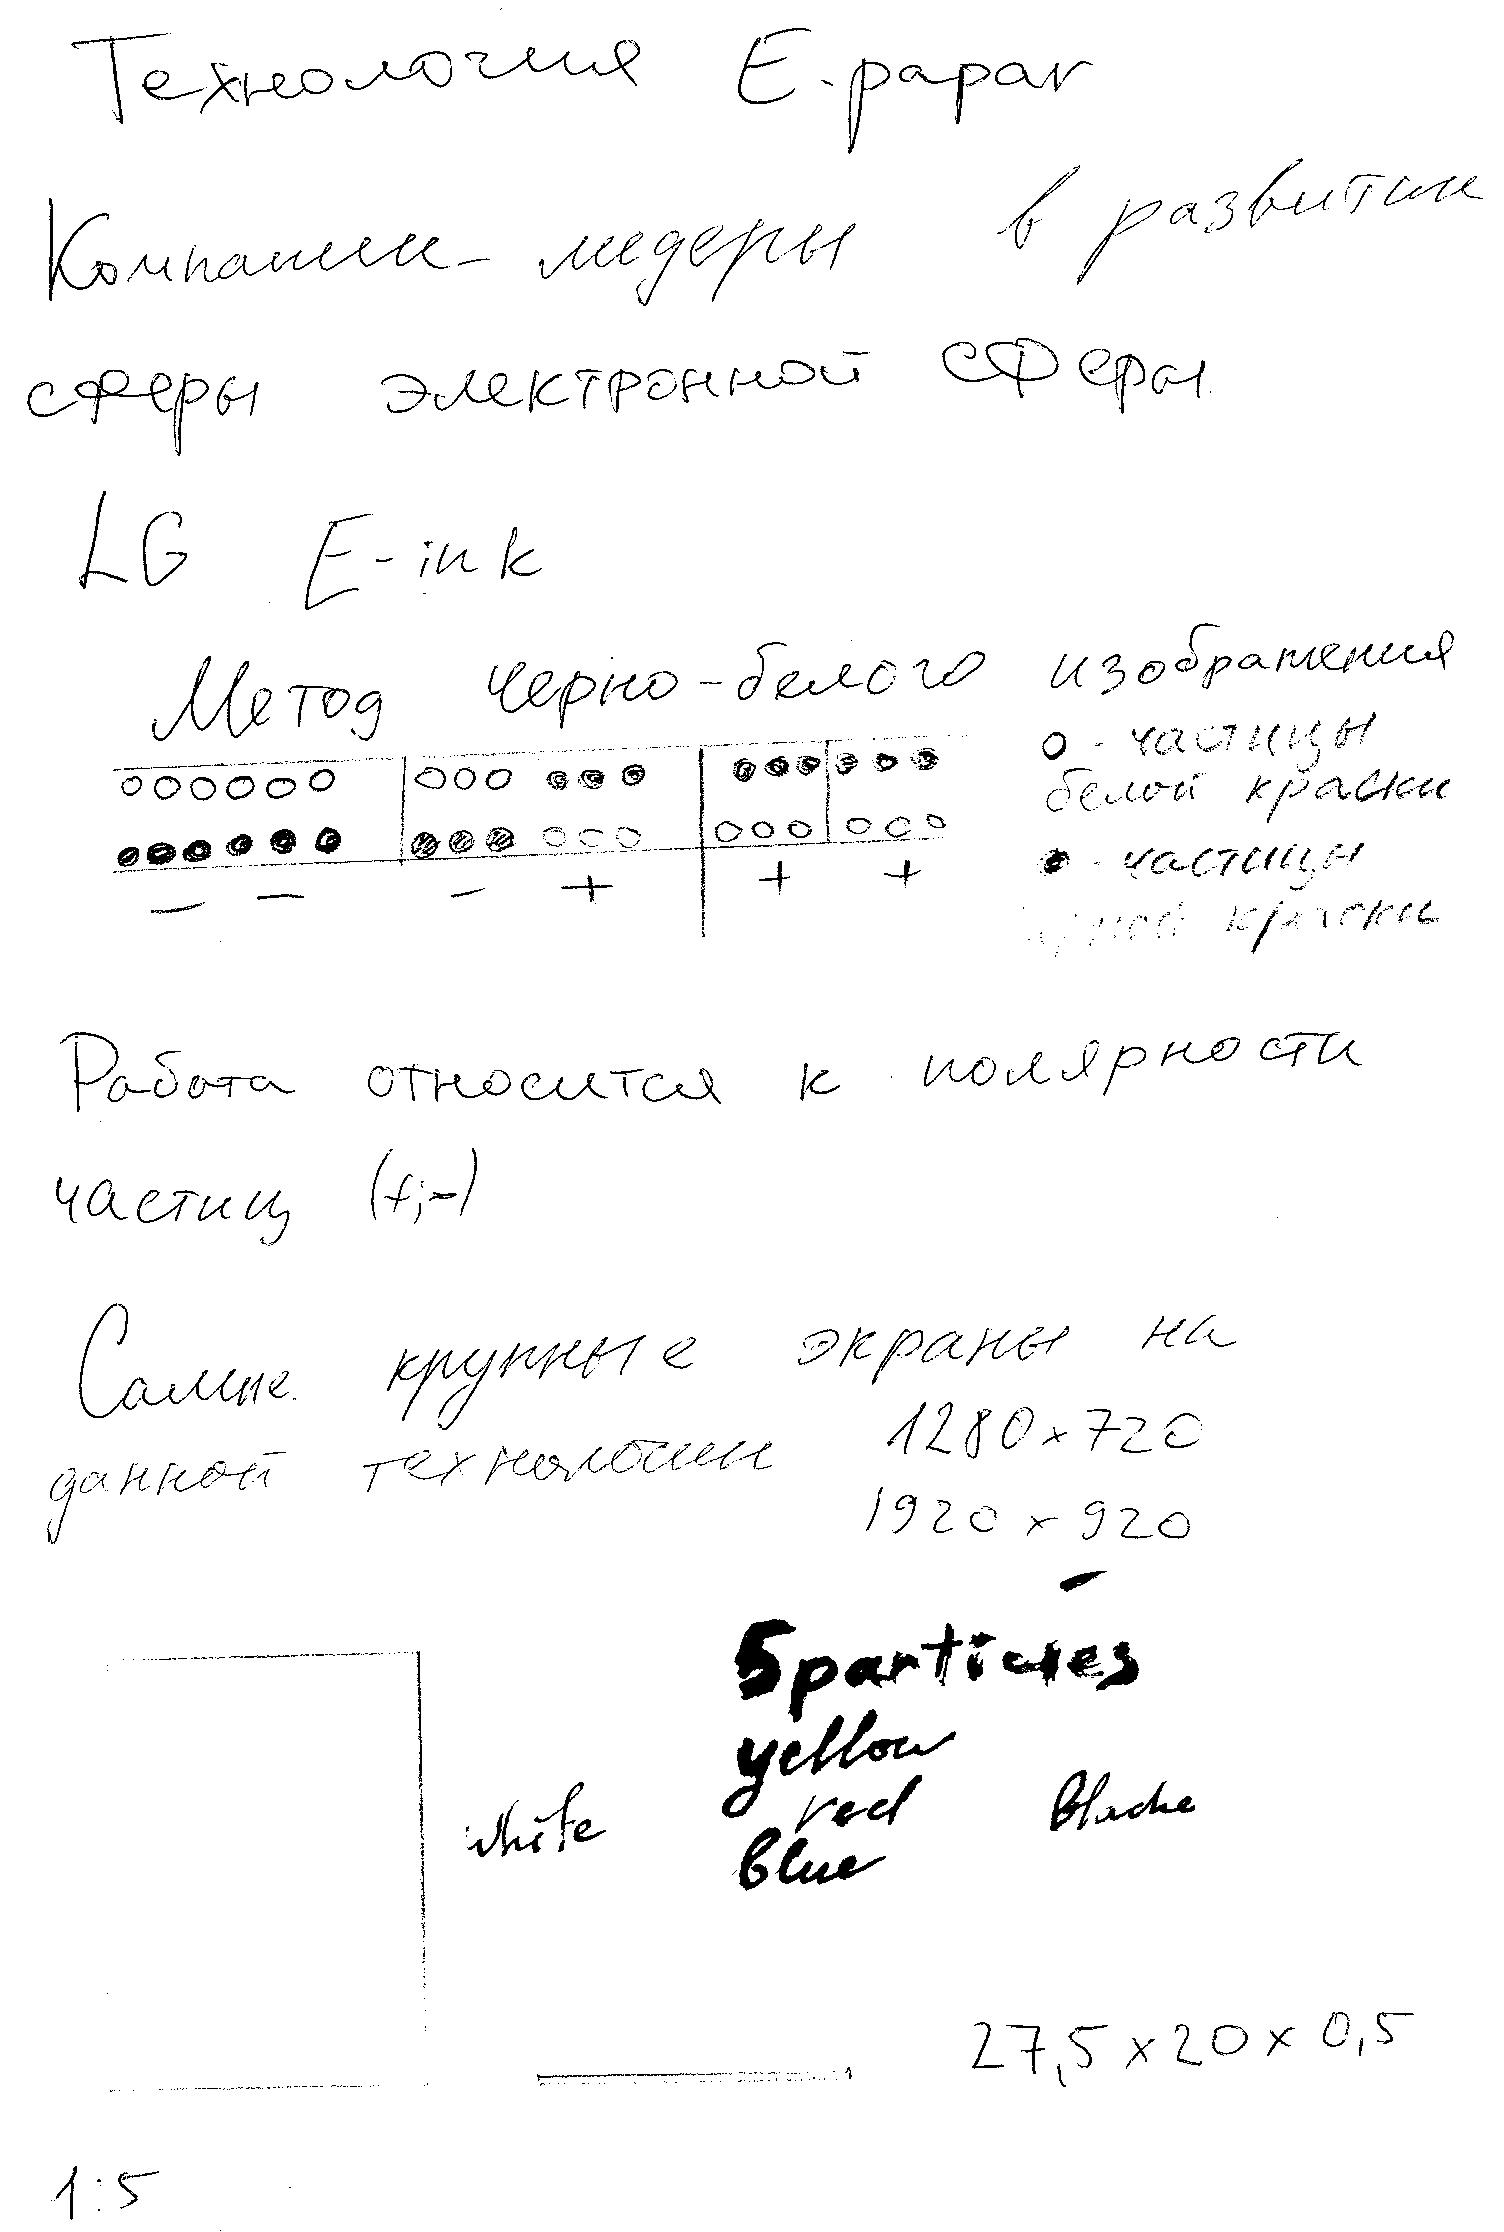 Технология E-papar
Компании-лидеры в развитии
сферы электронной сферы
LG E-ink
Метод черно-белого изображения
о - частицы
белой краски
- частицы
краски
- - - + + +
Работа относится к полярности
частиц (+;-)
Самые крупные экраны на
данной технологии 1280x720
1920x920
5 particles
yellow
white red Blacke
Blue
27,5x20x0,5
1:5